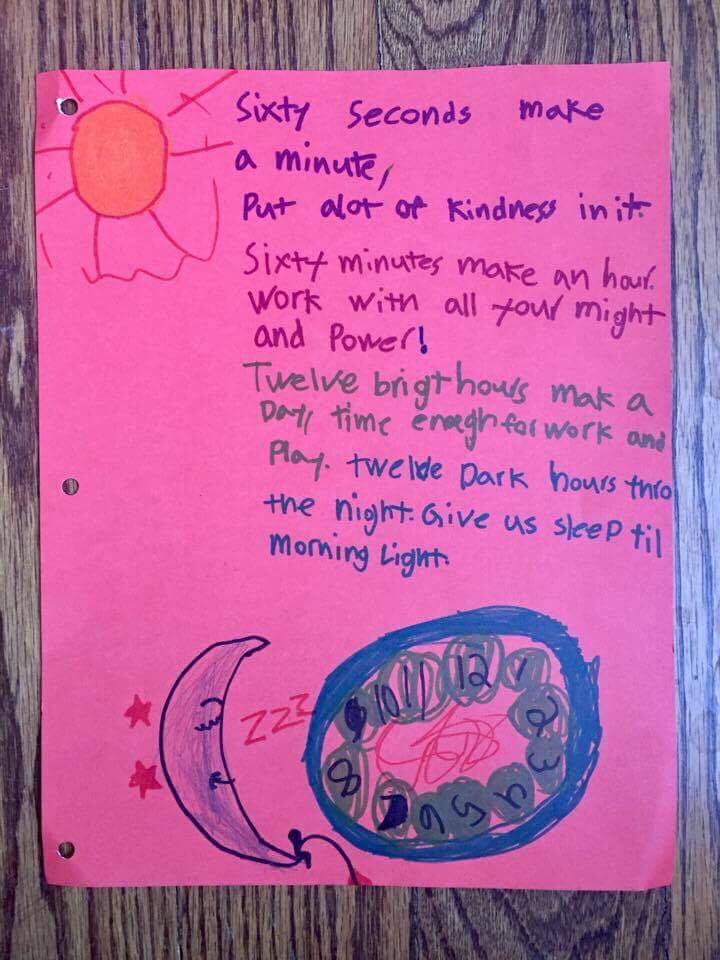 Sixty Seconds make
a minute,
Put alot of Kindness in it.
Sixty minutes make an hour.
Work with all your might
and Power!
Twelve brigt hours mak a
Day, time enogh for work and
Play. twelde Dark hours thro
the night. Give us sleep til
morning Light.
ZZZ
12
1
2
3
4
5
6
7
8
9
10
11